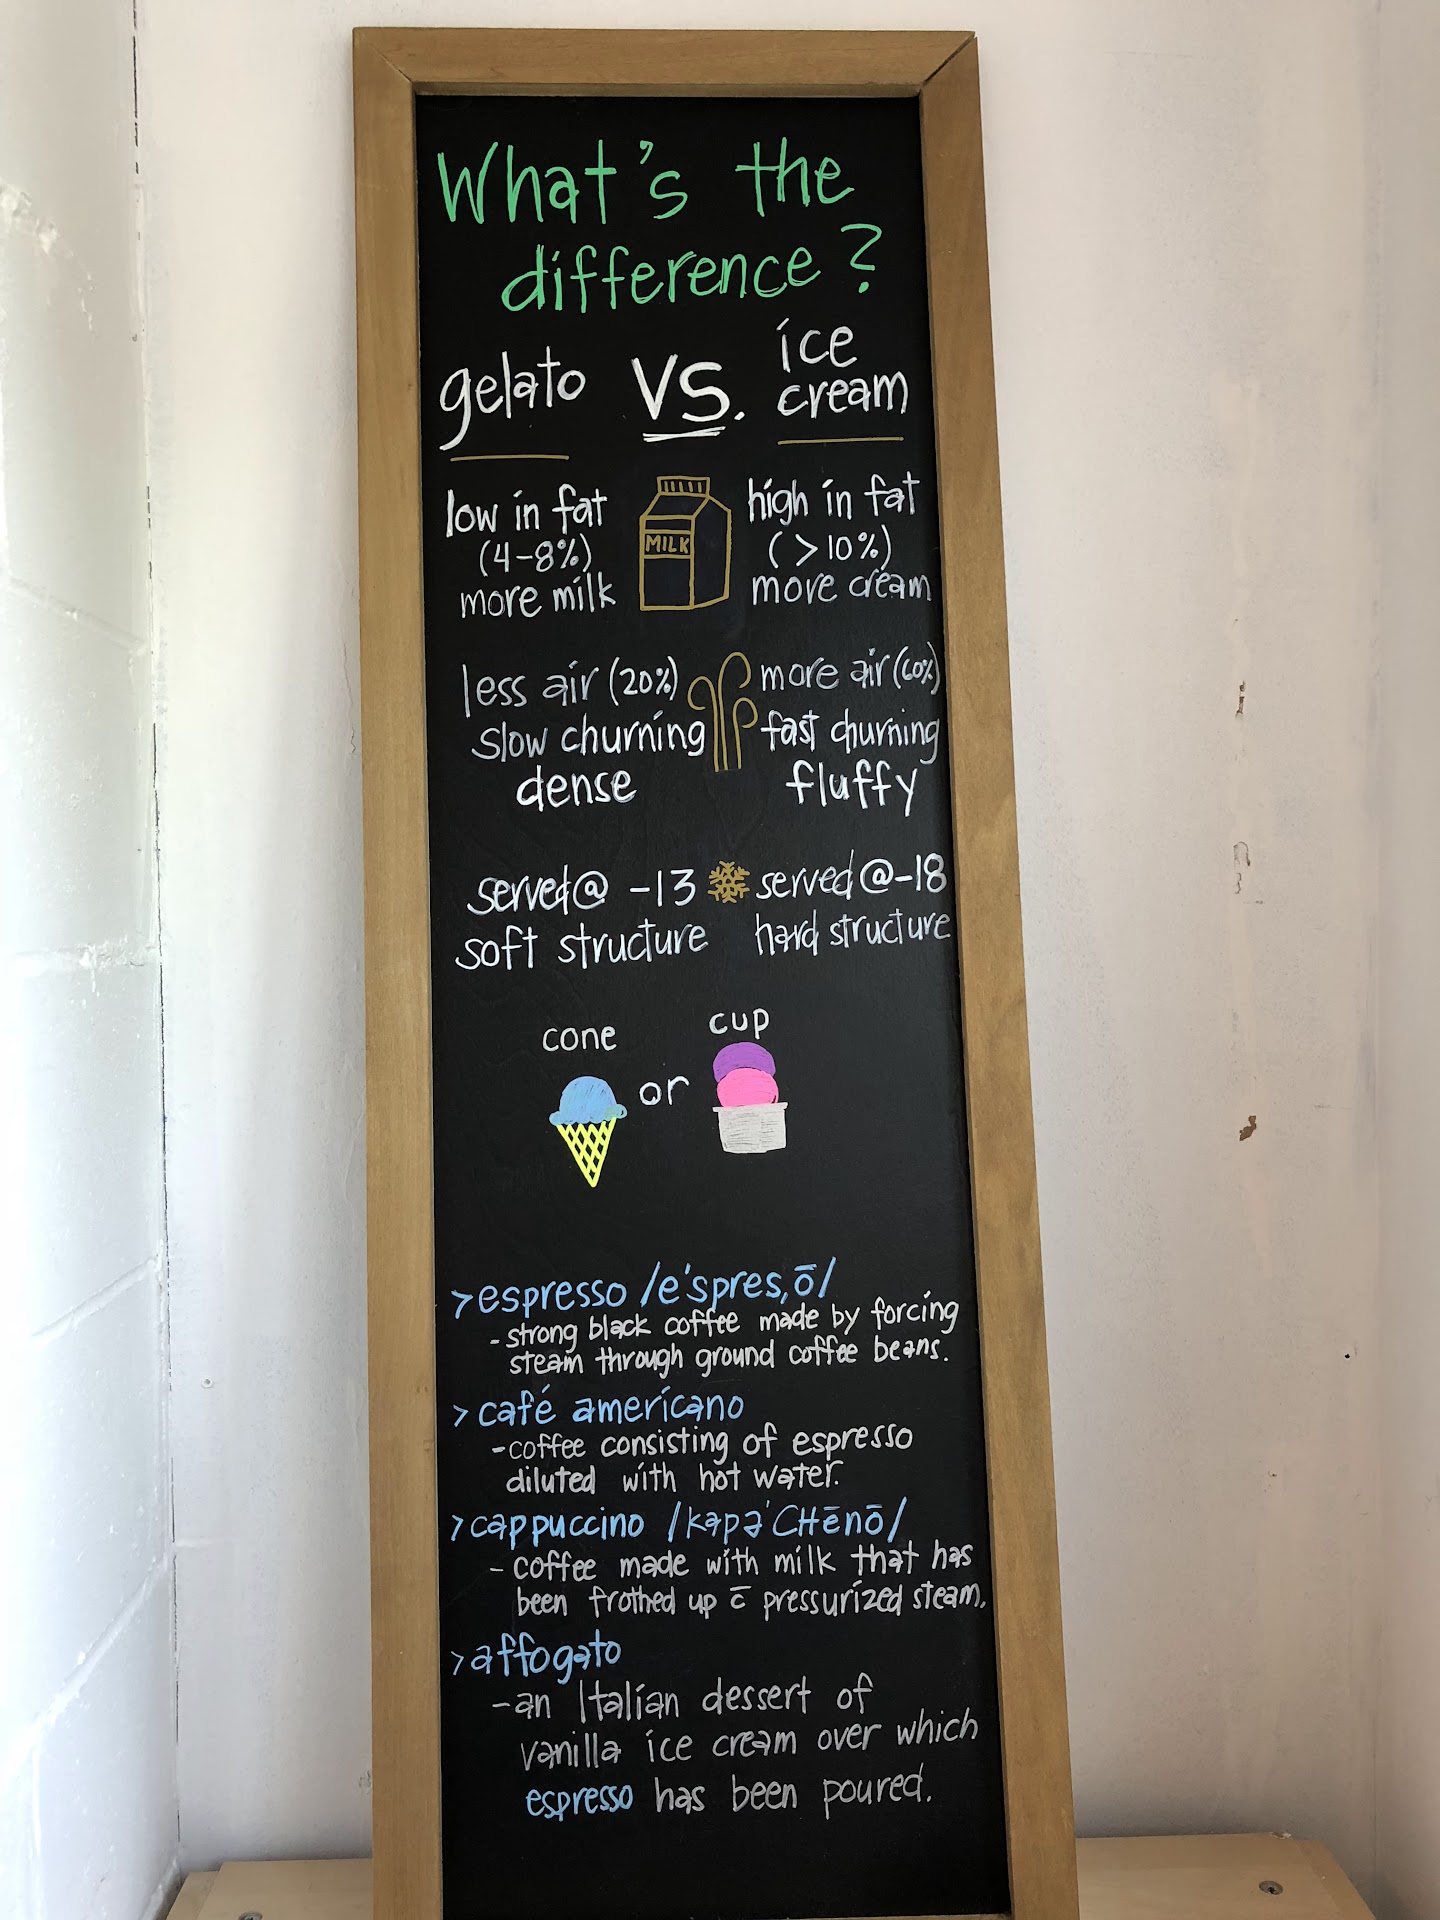 What's the
difference?
gelato VS. ice
cream
low in fat
(4-8%)
more milk
MILK
high in fat
(>10%)
more cream
less air (20%)
slow churning
dense
more air (60%)
fast churning
fluffy
served@ -13
soft structure
served@-18
hard structure
cone
or
cup
>espresso /e'spres,ō/
-strong black coffee made by forcing
steam through ground coffee beans.
>café americano
-coffee consisting of espresso
diluted with hot water.
>cappuccino /kapə'CHēnō/
- coffee made with milk that has
been frothed up c̄ pressurized steam.
>affogato
-an Italian dessert of
vanilla ice cream over which
espresso has been poured.